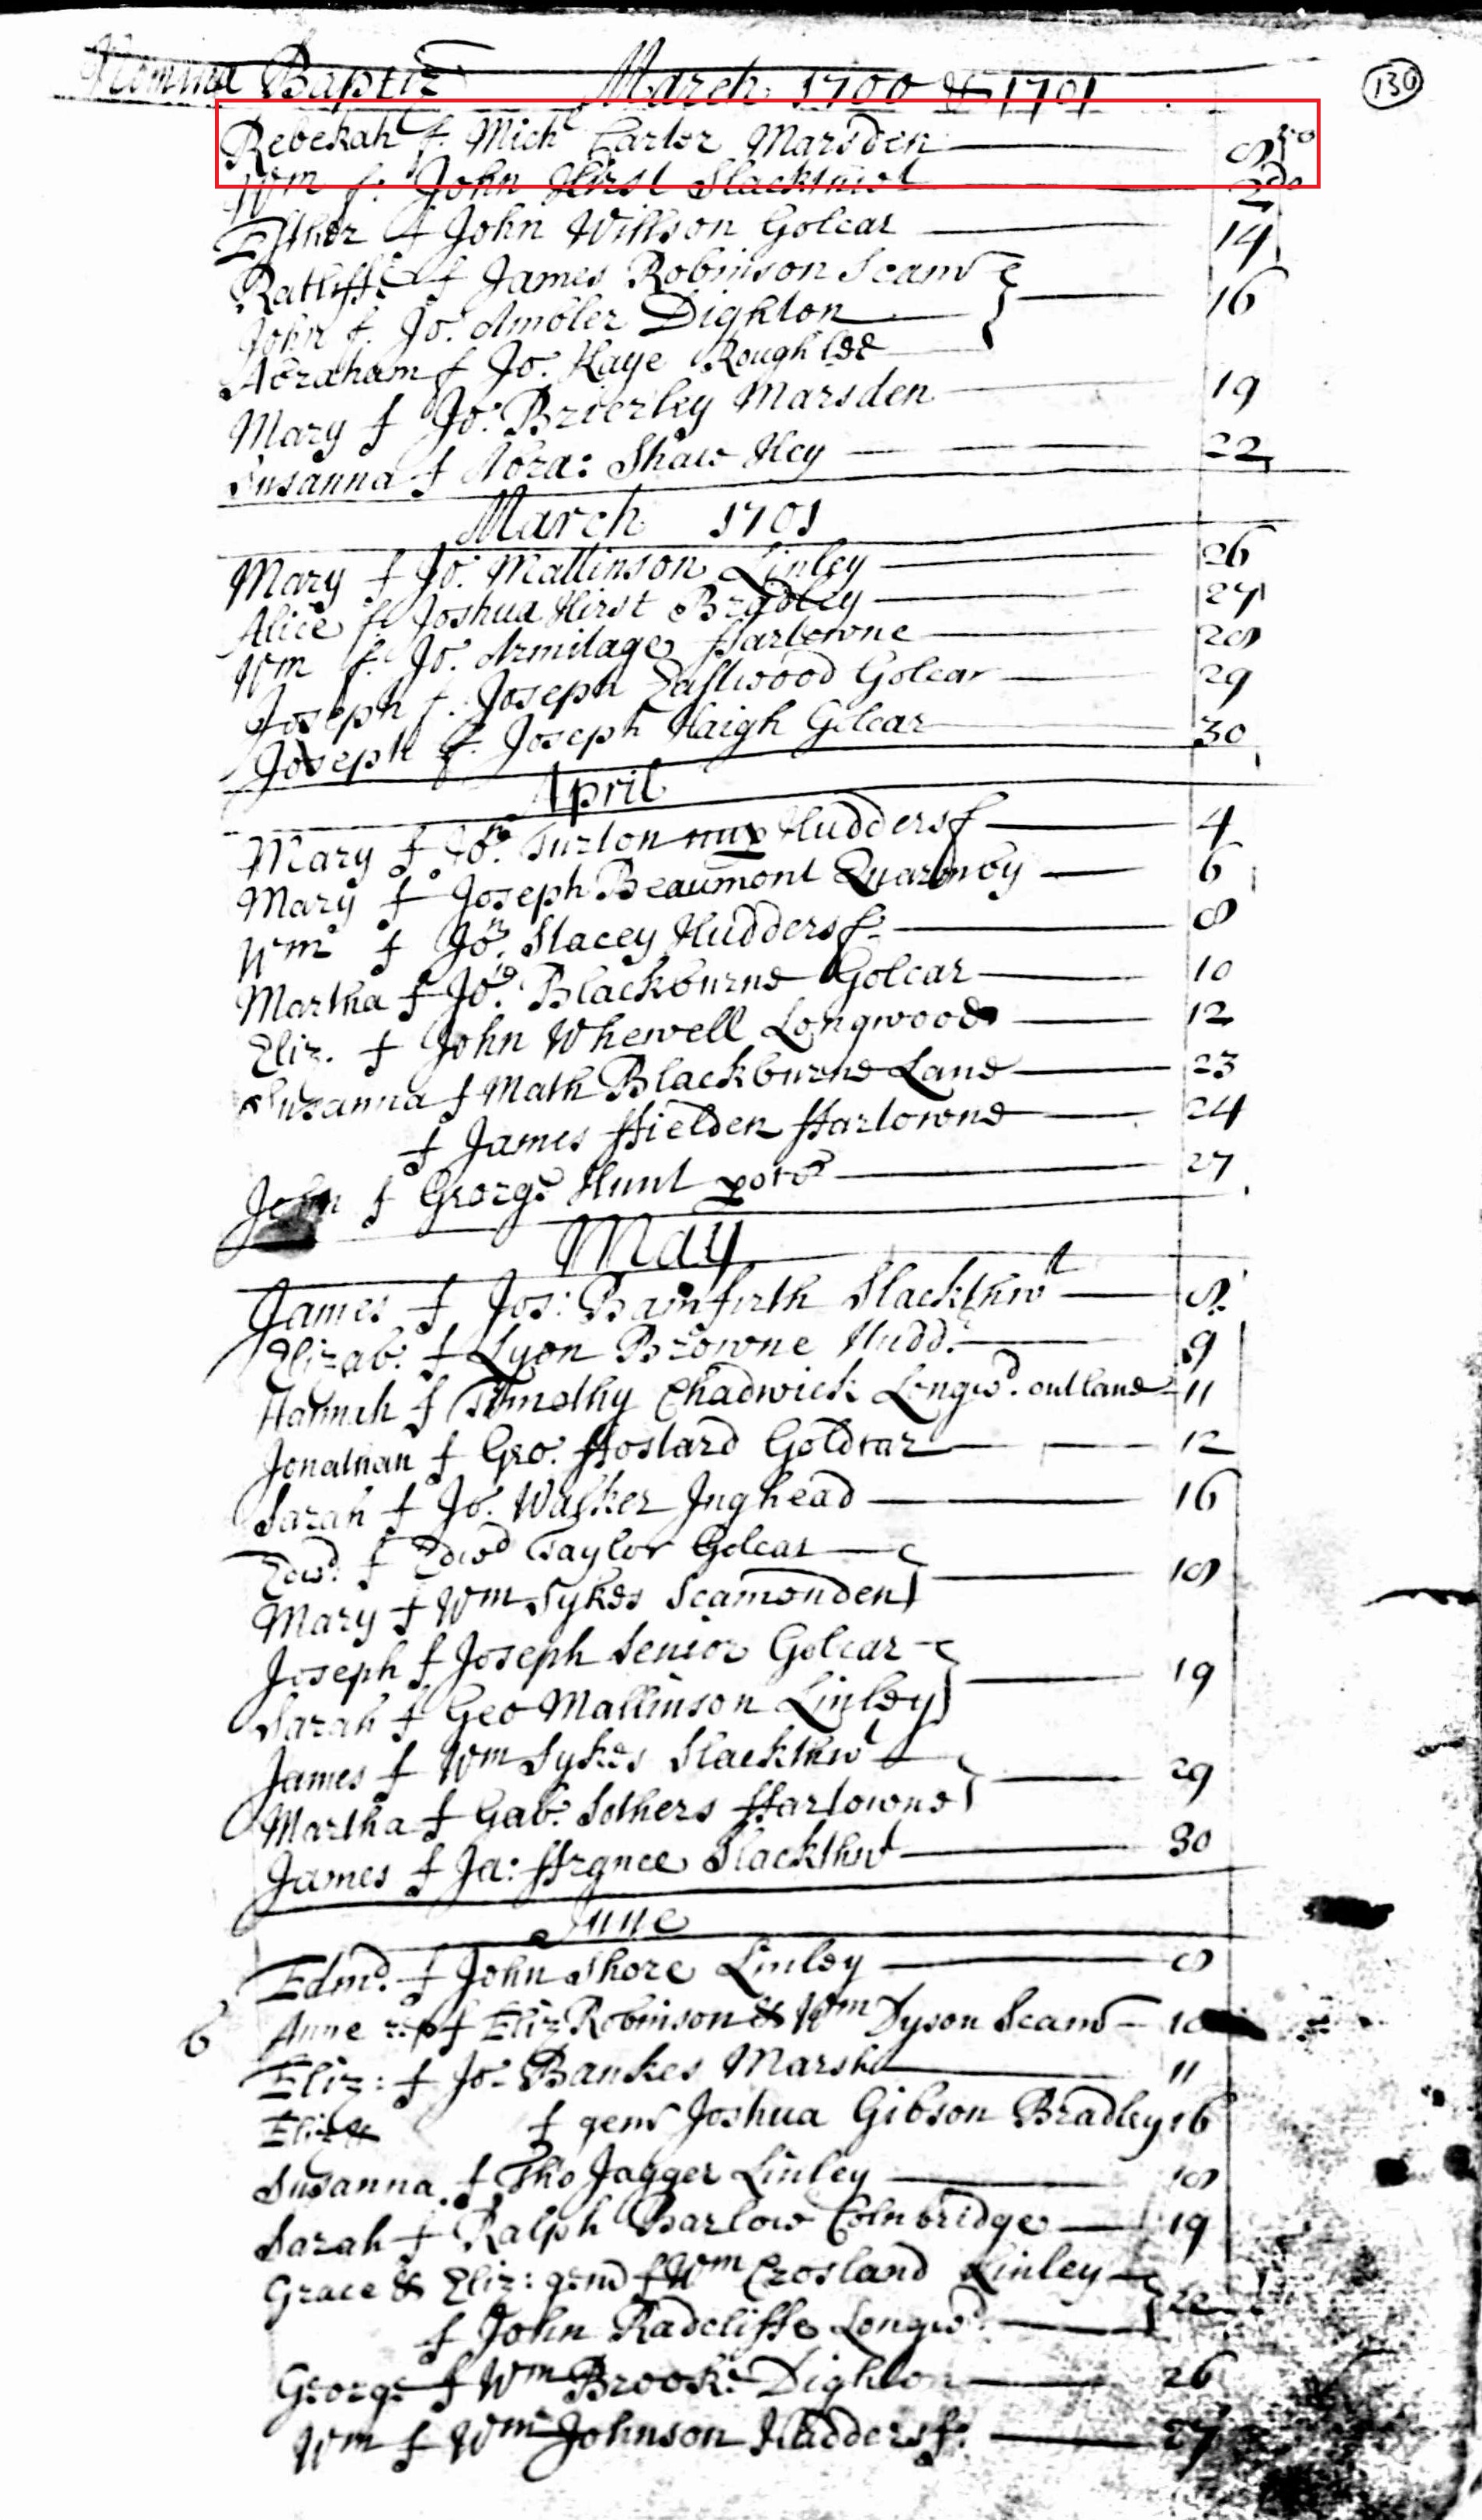 Nomina Baptiz March 1700 & 1701
130
Rebekah f. Mich: Carter Marsden 8
Wm f. John Hirst Slackthwt 2do
Esther f John Willson Golcar 14
Ratliffe f James Robinson Scamd
John f. Jo. Ambler Dighton 16
Abraham f Jo. Kaye Rough lee
Mary f Jo: Brierley Marsden 19
Susanna f Abra: Shaw Hey 22
March 1701
Mary f Jo. Mallinson Linley 26
Alice f. Joshua Hirst Bradley 27
Wm f. Jo. Armitage ffartowne 28
Joseph f. Joseph Eastwood Golcar 29
Joseph f. Joseph Haigh Golcar 30
April
Mary f Jon. Turton Huddersf 4
Mary f Joseph Beaumont Quarmby 6
Wm f Jon. Stacey Huddersf. 8
Martha f Jo. Blackburne Golcar 10
Eliz. f John Whewell Longwood 12
Susanna f Math Blackburne Lane 23
f James ffielden ffartowne 24
John f George Hunt 27
May
James f Jos: Bamfirth Slackthwt 8.
Elizab. f Lyon Browne Hudd. 9
Hannah f Timothy Chadwick Longwd. outlane 11
Jonathan f Geo. ffostard Goldcar 12
Sarah f Jo. Walker Inghead 16
Edwd. f Edwd Taylor Golcar
Mary f Wm Sykes Scamonden 18
Joseph f Joseph Senior Golcar
Sarah f Geo Mallinson Linley 19
James f Wm Sykes Slackthwt
Martha f Gab. Sothers ffartowne 29
James f Ja: ffrance Slackthwt 30
June
Edmd. f John Shore Linley 8
b Anne rep f Eliz Robinson & Wm Dyson Scamd 10
Eliz: f Jo. Bankes Marsh 11
Eliz & f gem Joshua Gibson Bradley 16
Susanna. f Tho Jagger Linley 18
Sarah f Ralph Barlow Colnbridge 19
Grace & Eliz: gem f Wm Crosland Linley
f John Radcliffe Longwd.
George f Wm Brooke Dighton 26
Wm f Wm Johnson Huddersf. 27